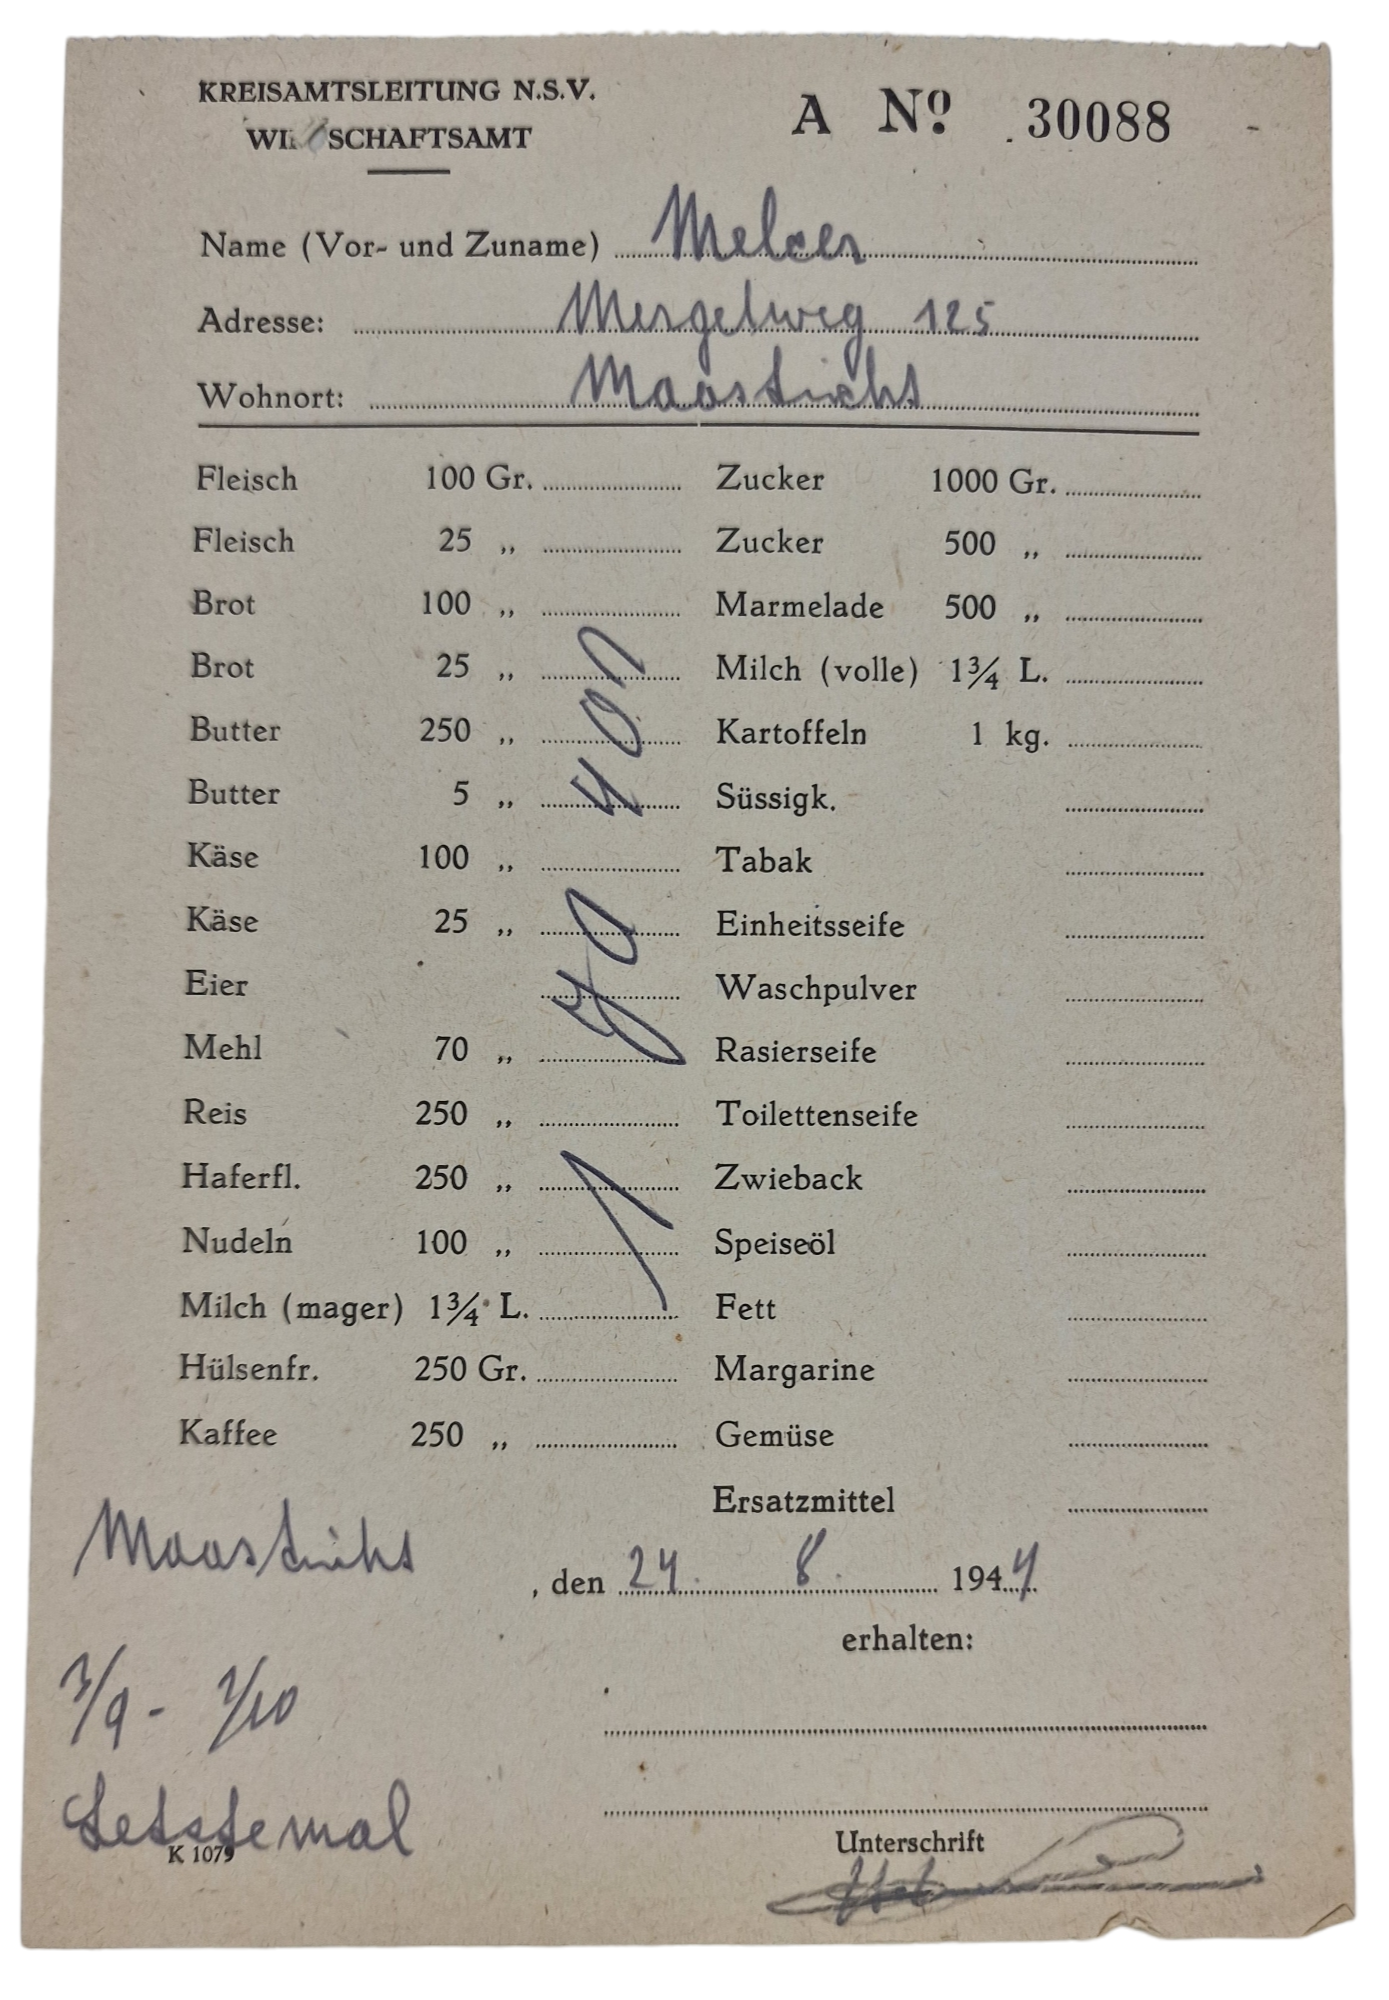 KREISAMTSLEITUNG N.S.V.
WIRTSCHAFTSAMT
A No 30088
Name (Vor- und Zuname) Melcer
Adresse: Mergelweg 125
Wohnort: Maastricht
Fleisch 100 Gr. Zucker 1000 Gr.
Fleisch 25 „ Zucker 500 „
Brot 100 „ Marmelade 500 „
Brot 25 „ Milch (volle) 1¾ L.
Butter 250 „ Kartoffeln 1 kg.
Butter 5 „ Süssigk.
Käse 100 „ Tabak
Käse 25 „ Einheitsseife
Eier Waschpulver
Mehl 70 „ Rasierseife
Reis 250 „ Toilettenseife
Haferfl. 250 „ Zwieback
Nudeln 100 „ Speiseöl
Milch (mager) 1¾ L. Fett
Hülsenfr. 250 Gr. Margarine
Kaffee 250 „ Gemüse
Ersatzmittel
Maastricht, den 24. 8. 1944
erhalten:
Letstemal
K 1079
Unterschrift